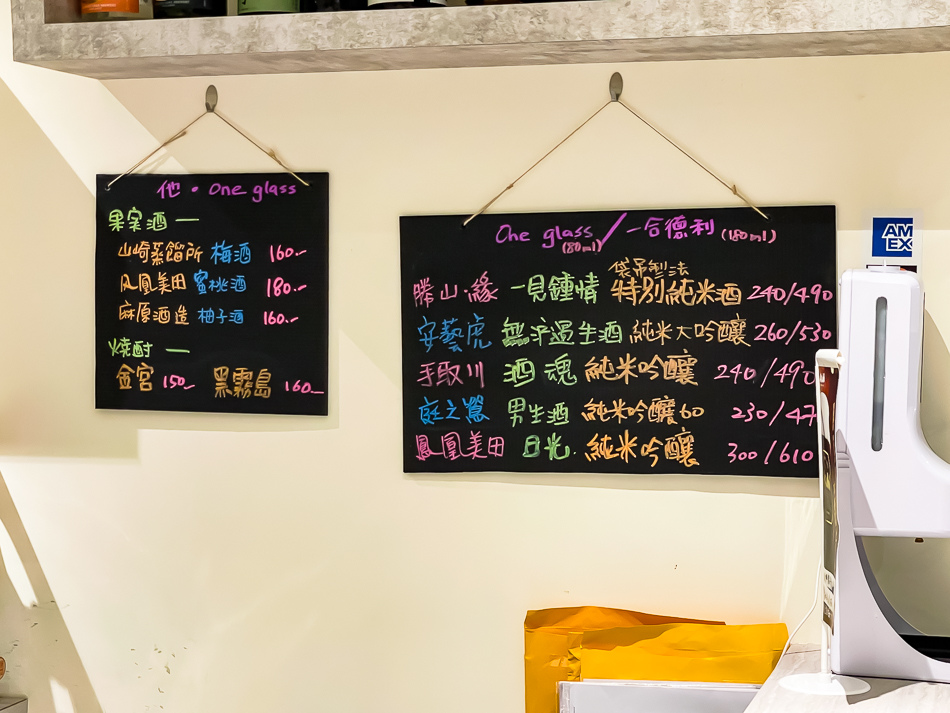 他・One glass
果実酒 —
山崎蒸餾所 梅酒 160.-
鳳凰美田 蜜桃酒 180.-
麻原酒造 柚子酒 160.-
焼酎 —
金宮 150.- 黑霧島 160.-
One glass (80ml) / 一合德利 (180ml)
袋吊製法
勝山·緣 一見鍾情 特別純米酒 240/490
安藝虎 無濾過生酒 純米大吟釀 260/530
手取川 酒魂 純米吟釀 240/490
庭之鶯 男生酒 純米吟釀60 230/47
鳳凰美田 日光. 純米吟釀 300/610
AM
EX